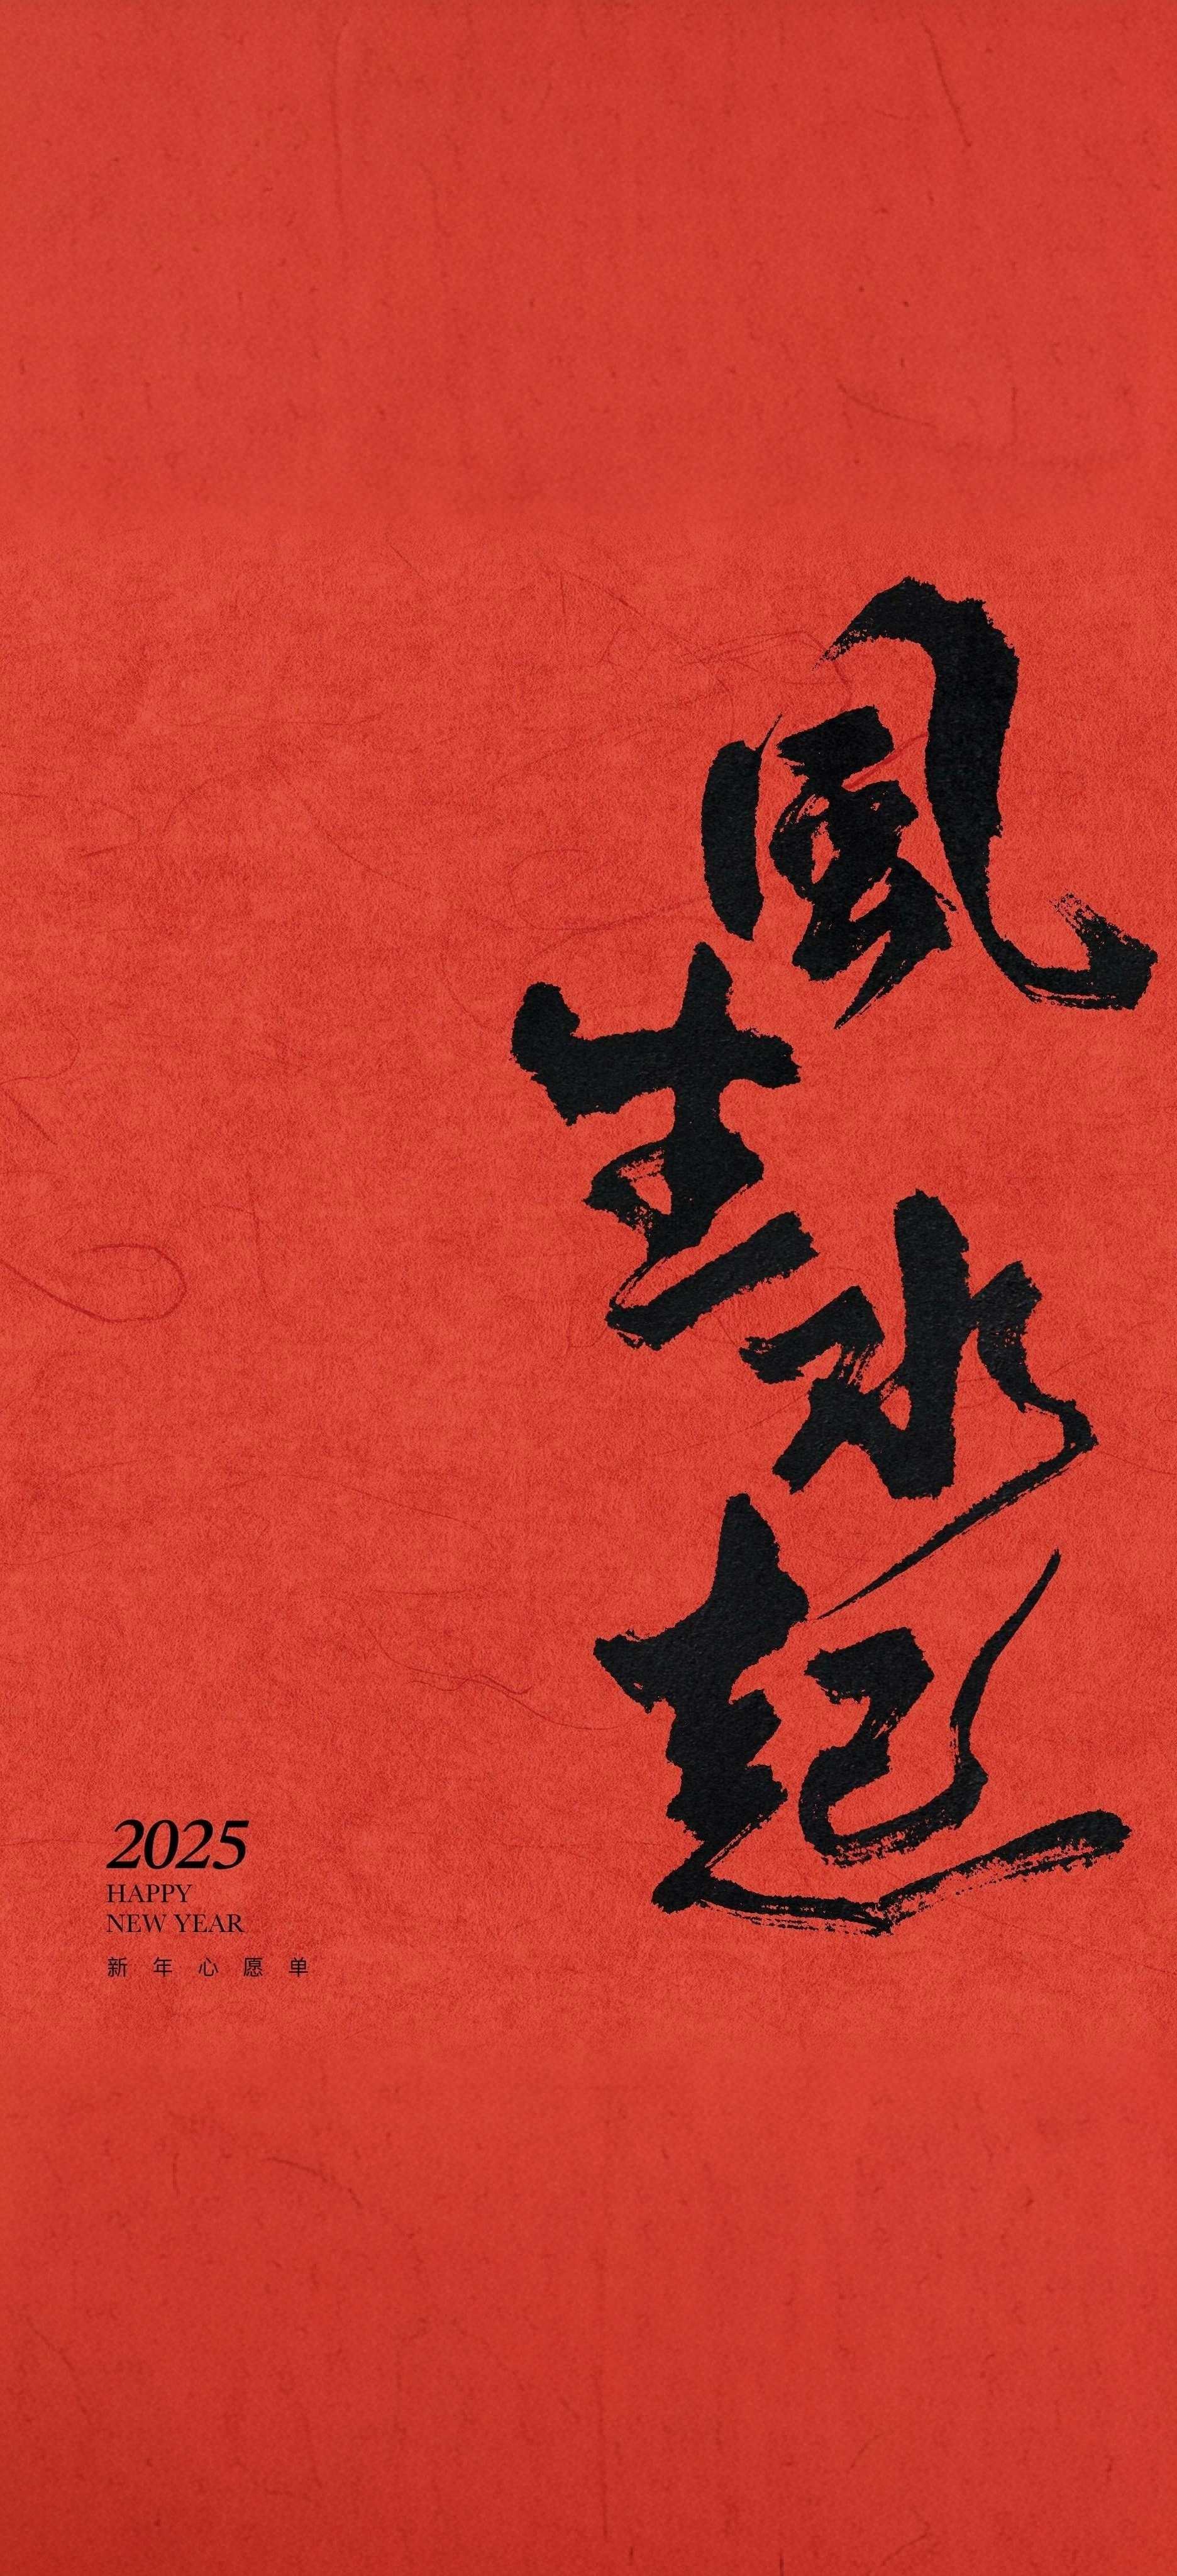 風生水起
2025
HAPPY
NEW YEAR
新年心愿单